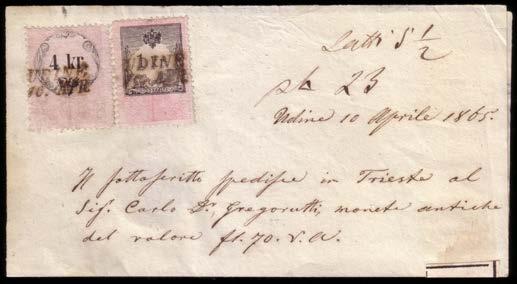 4 kr.
UDINE
16. APR
UDINE
Latti 5 1/2
23
Udine 10 Aprile 1865.
Il sottoscritto spedisse in Trieste al
Sig. Carlo Dr. Gregorutti, monete antiche
del valore fl. 70. V. A.